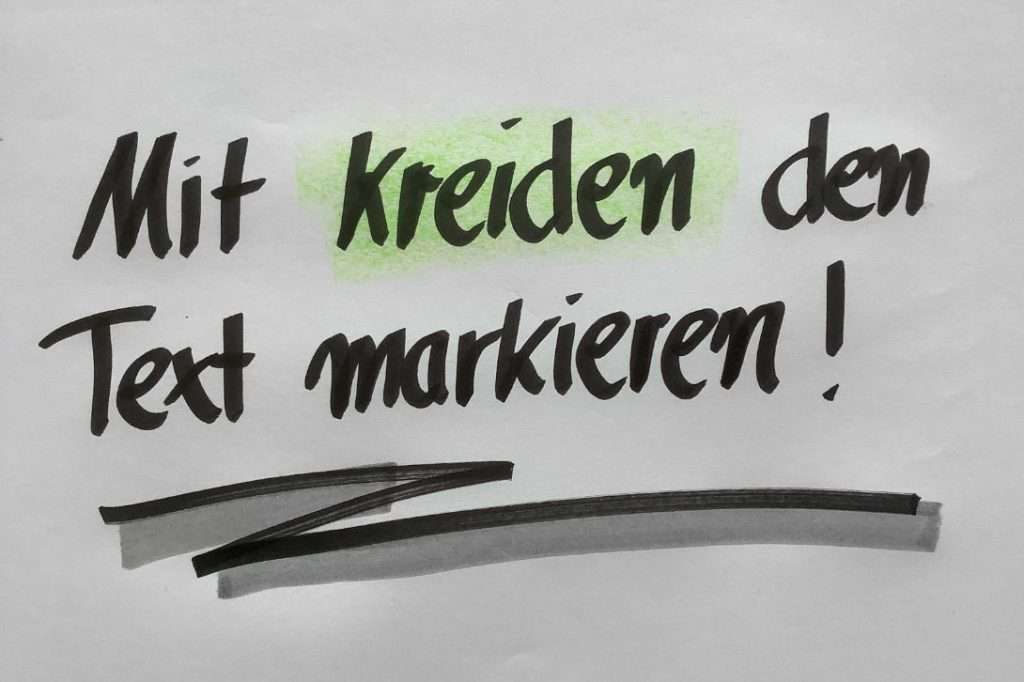 Mit Kreiden den
Text markieren!